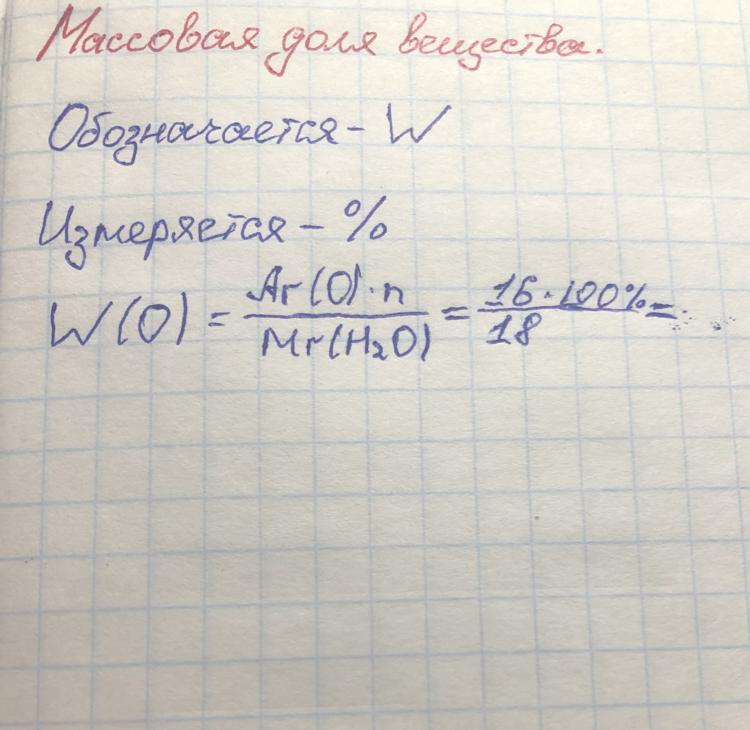 Массовая доля вещества.
Обозначается - W
Измеряется - %
W(O) = Ar(O)·n / Mr(H₂O) = 16·100% / 18 =